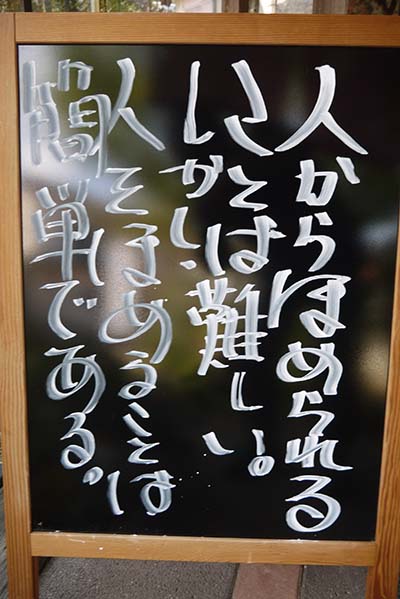 人からほめられる
ことは難しい。
しかし、
人をほめることは
簡単である。